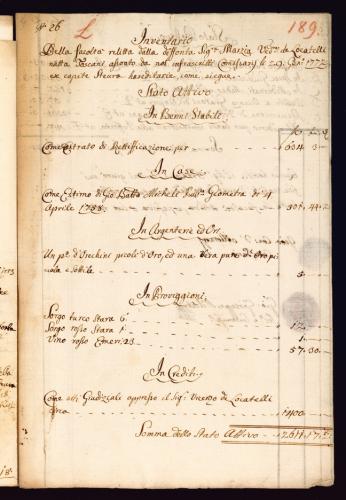 N° 26 L 189
Inventario
Della facoltà relitta dalla deffonta Sigra Marzia Veda de Locatelli
natta Toscani, assonto da noi infrascritti Comissarij le 29 Genro 1772
ex capite Steura hereditaria, come siegue.
Stato Attivo
In Benni Stabili
Come estrato di Rettificazione per 604 3
In Case
Come Estimo di Gio Batta Micheli Geometra de 4
Aprile 1788 44
In Argenterie ed Ori
Un pr d'Orechini picoli d'Oro, ed una Vera pure di Oro pi
cola e sottile 5
In Proviggioni
Sorgo turco Stara 6 12
Sorgo rosso Stara 1 1
Vino rosso Emeri 23 57 30
In Crediti
Come atti Giudiziali appresso il Sigr Vicenzo de Locatelli
1400
Somma dello Stato Attivo 2611 17